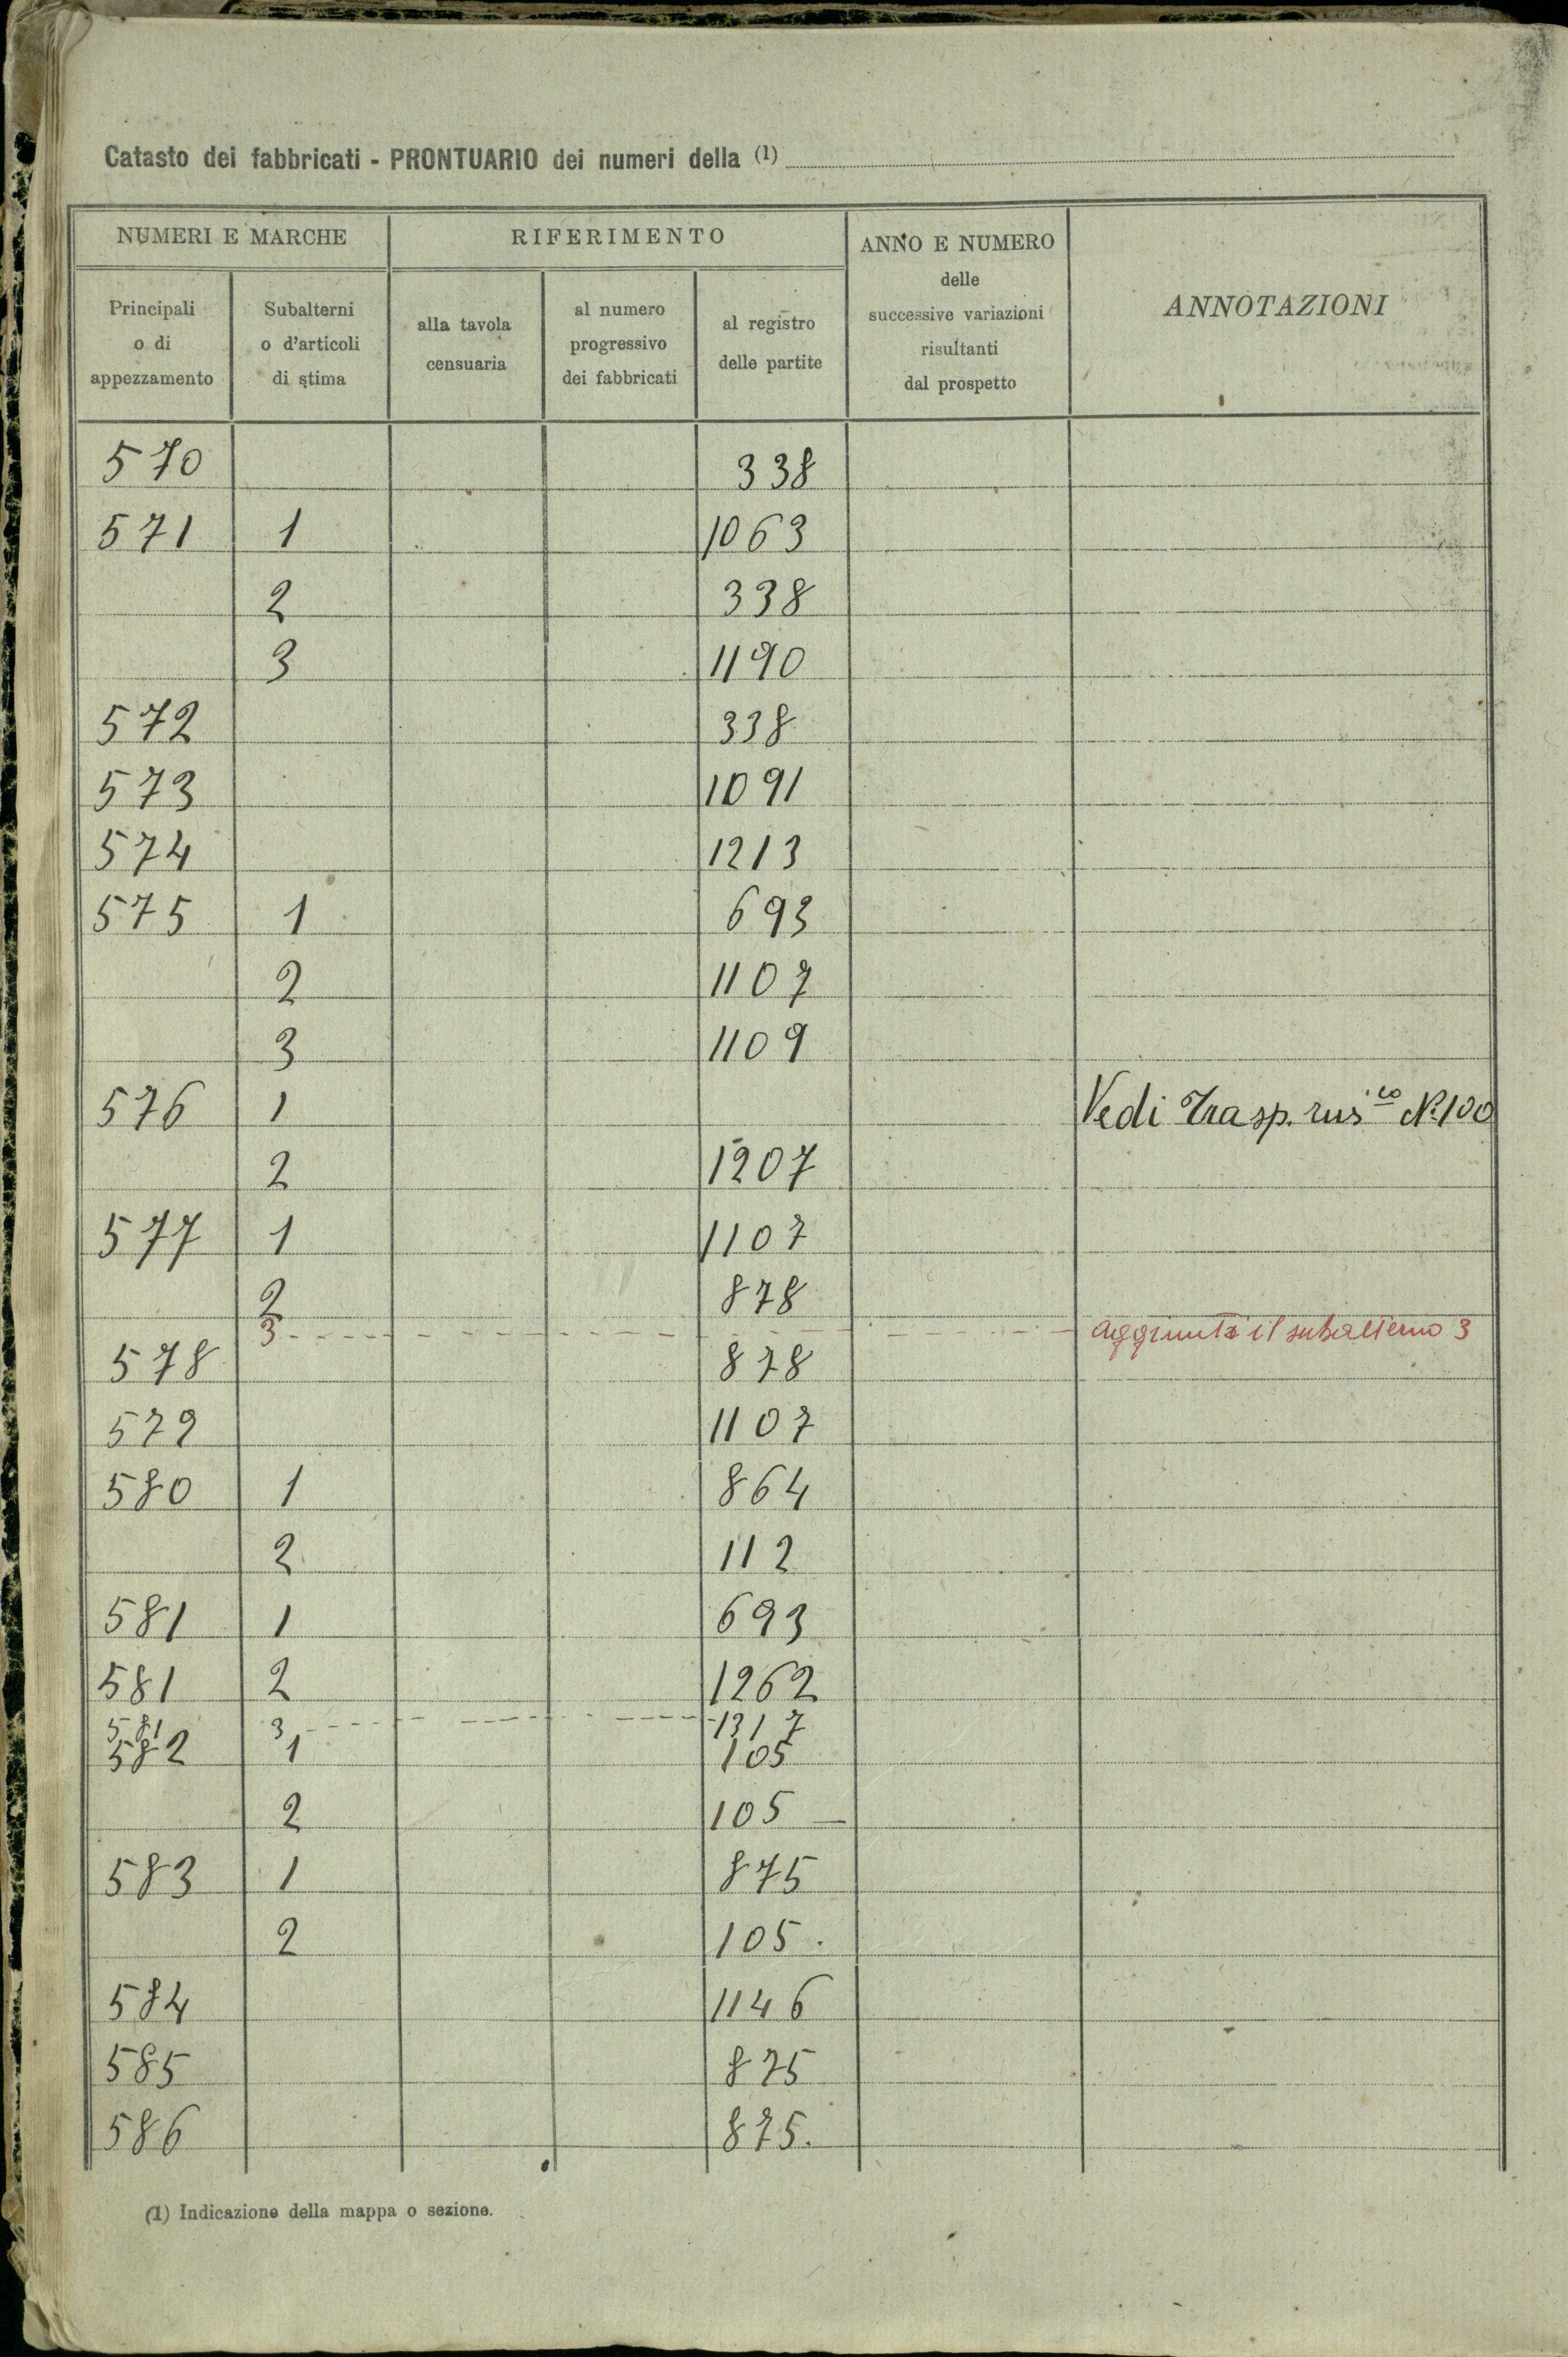 Catasto dei fabbricati - PRONTUARIO dei numeri della (1)
NUMERI E MARCHE RIFERIMENTO ANNO E NUMERO delle successive variazioni risultanti dal prospetto ANNOTAZIONI
Principali o di appezzamento Subalterni o d'articoli di stima alla tavola censuaria al numero progressivo dei fabbricati al registro delle partite
570 338
571 1 1063
2 338
3 1190
572 338
573 1091
574 1213
575 1 693
2 1107
3 1109
576 1 Vedi Trasp. rus co N.100
2 1207
577 1 1107
2 878
3 aggiunto il subalterno 3
578 878
579 1107
580 1 864
2 112
581 1 693
581 2 1262
581 3 1317
582 1 105
2 105 —
583 1 875
2 105.
584 1146
585 875
586 875.
(1) Indicazione della mappa o sezione.